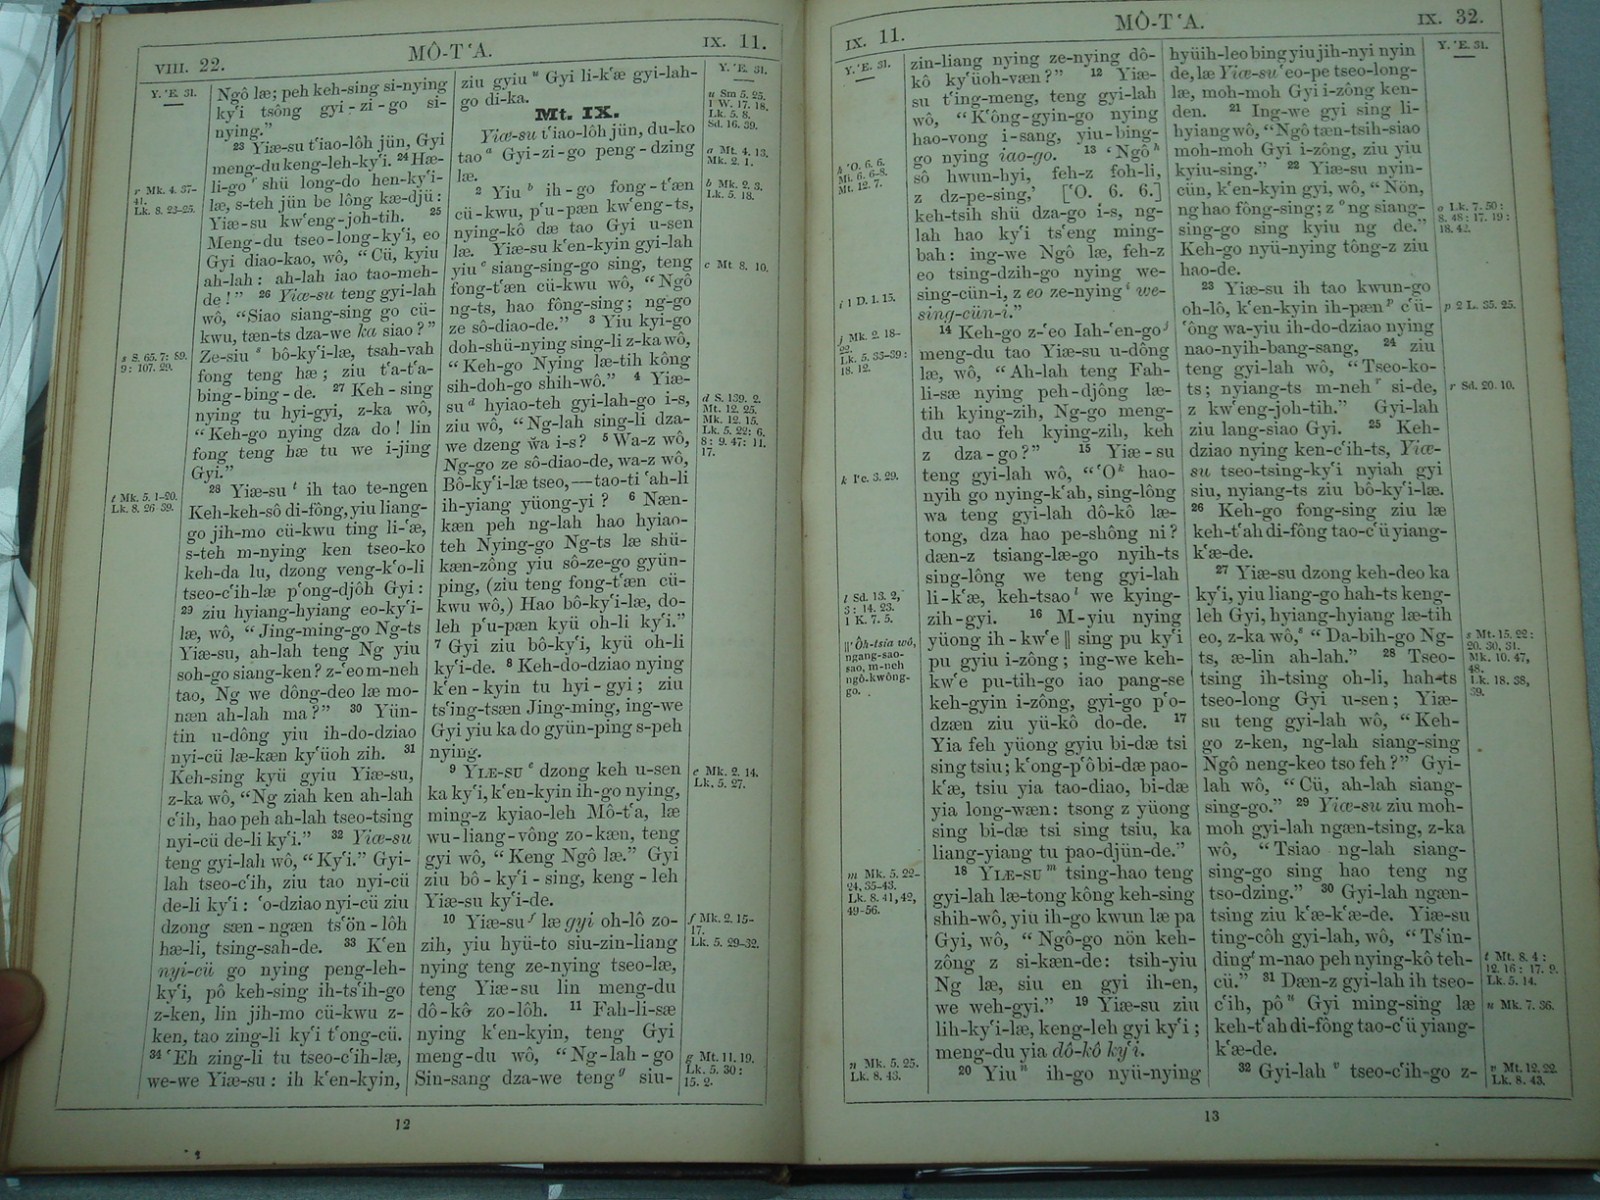 VIII. 22.
MÔ-TʻA.
IX. 11.
Y. ʻE. 31.
r Mk. 4. 37-
41.
Lk. 8. 23-25.
s S. 65. 7: 89.
9: 107. 29.
t Mk. 5. 1-20.
Lk. 8. 26-39.
Ngô læ; peh keh-sing si-nying
kyʻi tsông gyi-zi-go si-
nying.”
23 Yiæ-su tʻiao-lôh jün, Gyi
meng-du keng-leh-kyʻi. 24 Hæ-
li-go r shü long-do hen-kyʻi-
læ, s-teh jün be lông kæ-djü:
Yiæ-su kwʻeng-joh-tih. 25
Meng-du tseo-long-kyʻi, eo
Gyi diao-kao, wô, “Cü, kyiu
ah-lah: ah-lah iao tao-meh-
de!” 26 Yiæ-su teng gyi-lah
wô, “Siao siang-sing go cü-
kwu, tæn-ts dza-we ka siao?”
Ze-siu s bô-kyʻi-læ, tsah-vah
fong teng hæ; ziu tʻa-tʻa-
bing-bing-de. 27 Keh-sing
nying tu hyi-gyi, z-ka wô,
“Keh-go nying dza do! lin
fong teng hæ tu we i-jing
Gyi.”
28 Yiæ-su t ih tao te-ngen
Keh-keh-sô di-fông, yiu liang-
go jih-mo cü-kwu ting li-ʻæ,
s-teh m-nying ken tseo-ko
keh-da lu, dzong veng-kʻo-li
tseo-cʻih-læ pʻong-djôh Gyi:
29 ziu hyiang-hyiang eo-kyʻi-
læ, wô, “Jing-ming-go Ng-ts
Yiæ-su, ah-lah teng Ng yiu
soh-go siang-ken? z-ʻeo m-neh
tao, Ng we dông-deo læ mo-
næn ah-lah ma?” 30 Yün-
tin u-dông yiu ih-do-dziao
nyi-cü læ-kæn kyʻüoh zih. 31
Keh-sing kyü gyiu Yiæ-su,
z-ka wô, “Ng ziah ken ah-lah
cʻih, hao peh ah-lah tseo-tsing
nyi-cü de-li kyʻi.” 32 Yiæ-su
teng gyi-lah wô, “Kyʻi.” Gyi-
lah tseo-cʻih, ziu tao nyi-cü
de-li kyʻi: ʻo-dziao nyi-cü ziu
dzong sæn-ngæn tsʻön-lôh
hæ-li, tsing-sah-de. 33 Kʻen
nyi-cü go nying peng-leh-
kyʻi, pô keh-sing ih-tsʻih-go
z-ken, lin jih-mo cü-kwu z-
ken, tao zing-li kyʻi tʻong-cü.
34 ʻEh zing-li tu tseo-cʻih-læ,
we-we Yiæ-su: ih kʻen-kyin,
ziu gyiu u Gyi li-kʻæ gyi-lah-
go di-ka.
Mt. IX.
Yiæ-su tʻiao-lôh jün, du-ko
tao a Gyi-zi-go peng-dzing
læ.
2 Yiu b ih-go fong-tʻæn
cü-kwu, pʻu-pæn kwʻeng-ts,
nying-kô dæ tao Gyi u-sen
læ. Yiæ-su kʻen-kyin gyi-lah
yiu c siang-sing-go sing, teng
fong-tʻæn cü-kwu wô, “Ngô
ng-ts, hao fông-sing; ng-go
ze sô-diao-de.” 3 Yiu kyi-go
doh-shü-nying sing-li z-ka wô,
“Keh-go Nying læ-tih kông
sih-doh-go shih-wô.” 4 Yiæ-
su d hyiao-teh gyi-lah-go i-s,
ziu wô, “Ng-lah sing-li dza-
we dzeng wa i-s? 5 Wa-z wô,
Ng-go ze sô-diao-de, wa-z wô,
Bô-kyʻi-læ tseo,—tao-ti ʻah-li
ih-yiang yüong-yi? 6 Næn-
kæn peh ng-lah hao hyiao-
teh Nying-go Ng-ts læ shü-
kæn-zông yiu sô-ze-go gyün-
ping, (ziu teng fong-tʻæn cü-
kwu wô,) Hao bô-kyʻi-læ, do-
leh pʻu-pæn kyü oh-li kyʻi.”
7 Gyi ziu bô-kyʻi, kyü oh-li
kyʻi-de. 8 Keh-do-dziao nying
kʻen-kyin tu hyi-gyi; ziu
tsʻing-tsæn Jing-ming, ing-we
Gyi yiu ka do gyün-ping s-peh
nying.
9 YIÆ-SU e dzong keh u-sen
ka kyʻi, kʻen-kyin ih-go nying,
ming-z kyiao-leh Mô-tʻa, læ
wu-liang-vông zo-kæn, teng
gyi wô, “Keng Ngô læ.” Gyi
ziu bô-kyʻi-sing, keng-leh
Yiæ-su kyʻi-de.
10 Yiæ-su f læ gyi oh-lô zo-
zih, yiu hyü-to siu-zin-liang
nying teng ze-nying tseo-læ,
teng Yiæ-su lin meng-du
dô-kô zo-lôh. 11 Fah-li-sæ
nying kʻen-kyin, teng Gyi
meng-du wô, “Ng-lah-go
Sin-sang dza-we teng g siu-
Y. ʻE. 31.
u Sm 5. 25.
1 W. 17. 18.
Lk. 5. 8.
Sd. 16. 39.
a Mt. 4. 13.
Mk. 2. 1.
b Mk. 2. 3.
Lk. 5. 18.
c Mt 8. 10.
d S. 139. 2.
Mt. 12. 25.
Mk. 12. 15.
Lk. 5. 22: 6.
8: 9. 47: 11.
17.
e Mk. 2. 14.
Lk. 5. 27.
f Mk. 2. 15-
17.
Lk. 5. 29-32.
g Mt. 11. 19.
Lk. 5. 30:
15. 2.
12
IX. 11.
MÔ-TʻA.
IX. 32.
Y. ʻE. 31.
h ʻO. 6. 6.
Mi. 6. 6-8.
Mt. 12. 7.
i 1 D. 1. 15.
j Mk. 2. 18-
22.
Lk. 5. 33-39:
18. 12.
k Iʻe. 3. 29.
l Sd. 13. 2,
3: 14. 23.
1 K. 7. 5.
‖ ʻÔh-tsia wô,
ngang-sao-
sao, m-neh
ngô-kwông-
go.
m Mk. 5. 22-
24, 35-43.
Lk. 8. 41, 42,
49-56.
n Mk. 5. 25.
Lk. 8. 43.
zin-liang nying ze-nying dô-
kô kyʻüoh-væn?” 12 Yiæ-
su tʻing-meng, teng gyi-lah
wô, “Kʻông-gyin-go nying
hao-vong i-sang, yiu-bing-
go nying iao-go. 13 ʻNgô h
sô hwun-hyi, feh-z foh-li,
z dz-pe-sing,ʼ [ʻO. 6. 6.]
keh-tsih shü dza-go i-s, ng-
lah hao kyʻi tsʻeng ming-
bah: ing-we Ngô læ, feh-z
eo tsing-dzih-go nying we-
sing-cün-i, z eo ze-nying i we-
sing-cün-i.”
14 Keh-go z-ʻeo Iah-ʻen-go j
meng-du tao Yiæ-su u-dông
læ, wô, “Ah-lah teng Fah-
li-sæ nying peh-djông læ-
tih kying-zih, Ng-go meng-
du tao feh kying-zih, keh
z dza-go?” 15 Yiæ-su
teng gyi-lah wô, “ʻO k hao-
nyih go nying-kʻah, sing-lông
wa teng gyi-lah dô-kô læ-
tong, dza hao pe-shông ni?
dæn-z tsiang-læ-go nyih-ts
sing-lông we teng gyi-lah
li-kʻæ, keh-tsao l we kying-
zih-gyi. 16 M-yiu nying
yüong ih-kwʻe ‖ sing pu kyʻi
pu gyiu i-zông; ing-we keh-
kwʻe pu-tih-go iao pang-se
keh-gyin i-zông, gyi-go pʻo-
dzæn ziu yü-kô do-de. 17
Yia feh yüong gyiu bi-dæ tsi
sing tsiu; kʻong-pʻô bi-dæ pao-
kʻæ, tsiu yia tao-diao, bi-dæ
yia long-wæn: tsong z yüong
sing bi-dæ tsi sing tsiu, ka
liang-yiang tu pao-djün-de.”
18 YIÆ-SU m tsing-hao teng
gyi-lah læ-tong kông keh-sing
shih-wô, yiu ih-go kwun læ pa
Gyi, wô, “Ngô-go nön keh-
zông z si-kæn-de: tsih-yiu
Ng læ, siu en gyi ih-en,
we weh-gyi.” 19 Yiæ-su ziu
lih-kyʻi-læ, keng-leh gyi kyʻi;
meng-du yia dô-kô kyʻi.
20 Yiu n ih-go nyü-nying
hyüih-leo bing yiu jih-nyi nyin
de, læ Yiæ-su ʻeo-pe tseo-long-
læ, moh-moh Gyi i-zông ken-
den. 21 Ing-we gyi sing li-
hyiang wô, “Ngô tæn-tsih-siao
moh-moh Gyi i-zông, ziu yiu
kyiu-sing.” 22 Yiæ-su nyin-
cün, kʻen-kyin gyi, wô, “Nön,
ng hao fông-sing; z o ng siang-
sing-go sing kyiu ng de.”
Keh-go nyü-nying tông-z ziu
hao-de.
23 Yiæ-su ih tao kwun-go
oh-lô, kʻen-kyin ih-pæn p cʻü-
ʻông wa-yiu ih-do-dziao nying
nao-nyih-bang-sang, 24 ziu
teng gyi-lah wô, “Tseo-ko-
ts; nyiang-ts m-neh r si-de,
z kwʻeng-joh-tih.” Gyi-lah
ziu lang-siao Gyi. 25 Keh-
dziao nying ken-cʻih-ts, Yiæ-
su tseo-tsing-kyʻi nyiah gyi
siu, nyiang-ts ziu bô-kyʻi-læ.
26 Keh-go fong-sing ziu læ
keh-tʻah di-fông tao-cʻü yiang-
kʻæ-de.
27 Yiæ-su dzong keh-deo ka
kyʻi, yiu liang-go hah-ts keng-
leh Gyi, hyiang-hyiang læ-tih
eo, z-ka wô, s “Da-bih-go Ng-
ts, æ-lin ah-lah.” 28 Tseo-
tsing ih-tsing oh-li, hah-ts
tseo-long Gyi u-sen; Yiæ-
su teng gyi-lah wô, “Keh-
go z-ken, ng-lah siang-sing
Ngô neng-keo tso feh?” Gyi-
lah wô, “Cü, ah-lah siang-
sing-go.” 29 Yiæ-su ziu moh-
moh gyi-lah ngæn-tsing, z-ka
wô, “Tsiao ng-lah siang-
sing-go sing hao teng ng
tso-dzing.” 30 Gyi-lah ngæn-
tsing ziu kʻæ-kʻæ-de. Yiæ-su
ting-côh gyi-lah, wô, “Tsʻin-
ding t m-nao peh nying-kô teh-
cü.” 31 Dæn-z gyi-lah ih tseo-
cʻih, pô u Gyi ming-sing læ
keh-tʻah di-fông tao-cʻü yiang-
kʻæ-de.
32 Gyi-lah v tseo-cʻih-go z-
Y. ʻE. 31.
o Lk. 7. 50:
8. 48: 17. 19:
18. 42.
p 2 L. 35. 25.
r Sd. 20. 10.
s Mt. 15. 22:
20. 30, 31.
Mk. 10. 47,
48.
Lk. 18. 38,
39.
t Mt. 8. 4:
12. 16: 17. 9.
Lk. 5. 14.
u Mk. 7. 36.
v Mt. 12. 22.
Lk. 8. 43.
13